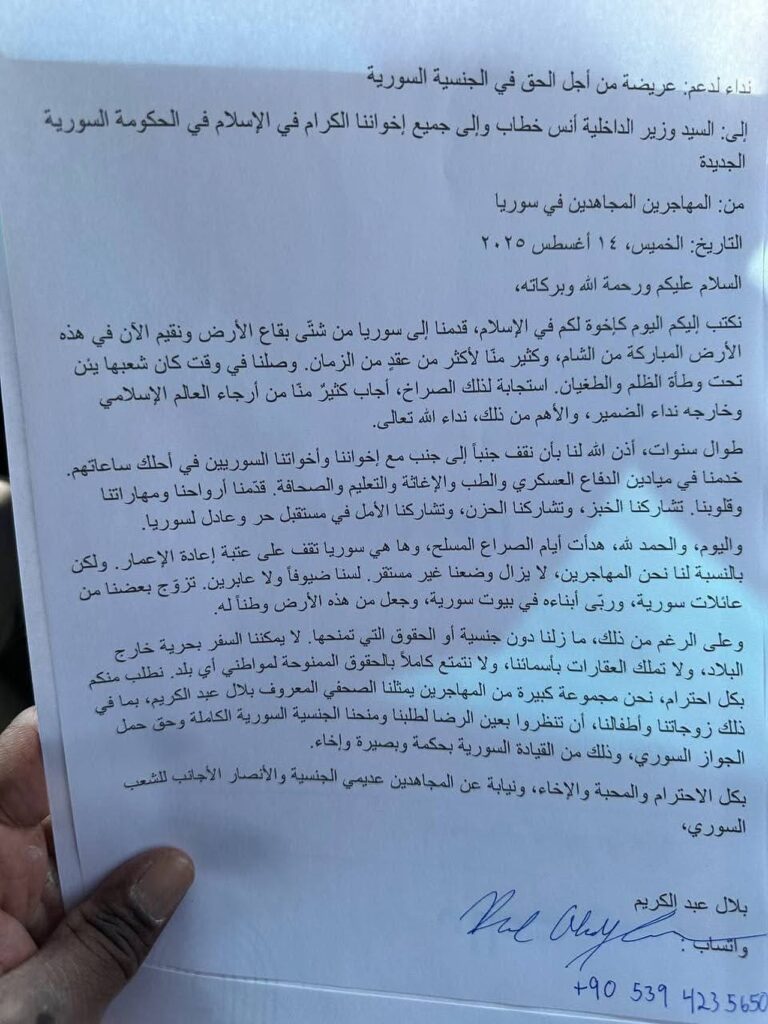 نداء لدعم: عريضة من أجل الحق في الجنسية السورية
إلى: السيد وزير الداخلية أنس خطاب وإلى جميع إخواننا الكرام في الإسلام في الحكومة السورية
الجديدة
من: المهاجرين المجاهدين في سوريا
التاريخ: الخميس، ١٤ أغسطس ٢٠٢٥
السلام عليكم ورحمة الله وبركاته،
نكتب إليكم اليوم كإخوة لكم في الإسلام، قدمنا إلى سوريا من شتّى بقاع الأرض ونقيم الآن في هذه
الأرض المباركة من الشام، وكثير منّا لأكثر من عقدٍ من الزمان. وصلنا في وقت كان شعبها يئن
تحت وطأة الظلم والطغيان. استجابة لذلك الصراخ، أجاب كثيرٌ منّا من أرجاء العالم الإسلامي
وخارجه نداء الضمير، والأهم من ذلك، نداء الله تعالى.
طوال سنوات، أذن الله لنا بأن نقف جنباً إلى جنب مع إخواننا وأخواتنا السوريين في أحلك ساعاتهم.
خدمنا في ميادين الدفاع العسكري والطب والإغاثة والتعليم والصحافة. قدّمنا أرواحنا ومهاراتنا
وقلوبنا. تشاركنا الخبز، وتشاركنا الحزن، وتشاركنا الأمل في مستقبل حر وعادل لسوريا.
واليوم، والحمد لله، هدأت أيام الصراع المسلح، وها هي سوريا تقف على عتبة إعادة الإعمار. ولكن
بالنسبة لنا نحن المهاجرين، لا يزال وضعنا غير مستقر. لسنا ضيوفاً ولا عابرين. تزوّج بعضنا من
عائلات سورية، وربّى أبناءه في بيوت سورية، وجعل من هذه الأرض وطناً له.
وعلى الرغم من ذلك، ما زلنا دون جنسية أو الحقوق التي تمنحها. لا يمكننا السفر بحرية خارج
البلاد، ولا تملك العقارات بأسمائنا، ولا نتمتع كاملاً بالحقوق الممنوحة لمواطني أي بلد. نطلب منكم
بكل احترام، نحن مجموعة كبيرة من المهاجرين يمثلنا الصحفي المعروف بلال عبد الكريم، بما في
ذلك زوجاتنا وأطفالنا، أن تنظروا بعين الرضا لطلبنا ومنحنا الجنسية السورية الكاملة وحق حمل
الجواز السوري، وذلك من القيادة السورية بحكمة وبصيرة وإخاء.
بكل الاحترام والمحبة والإخاء، ونيابة عن المجاهدين عديمي الجنسية والأنصار الأجانب للشعب
السوري،
بلال عبد الكريم
واتساب :
+90 539 423 5650